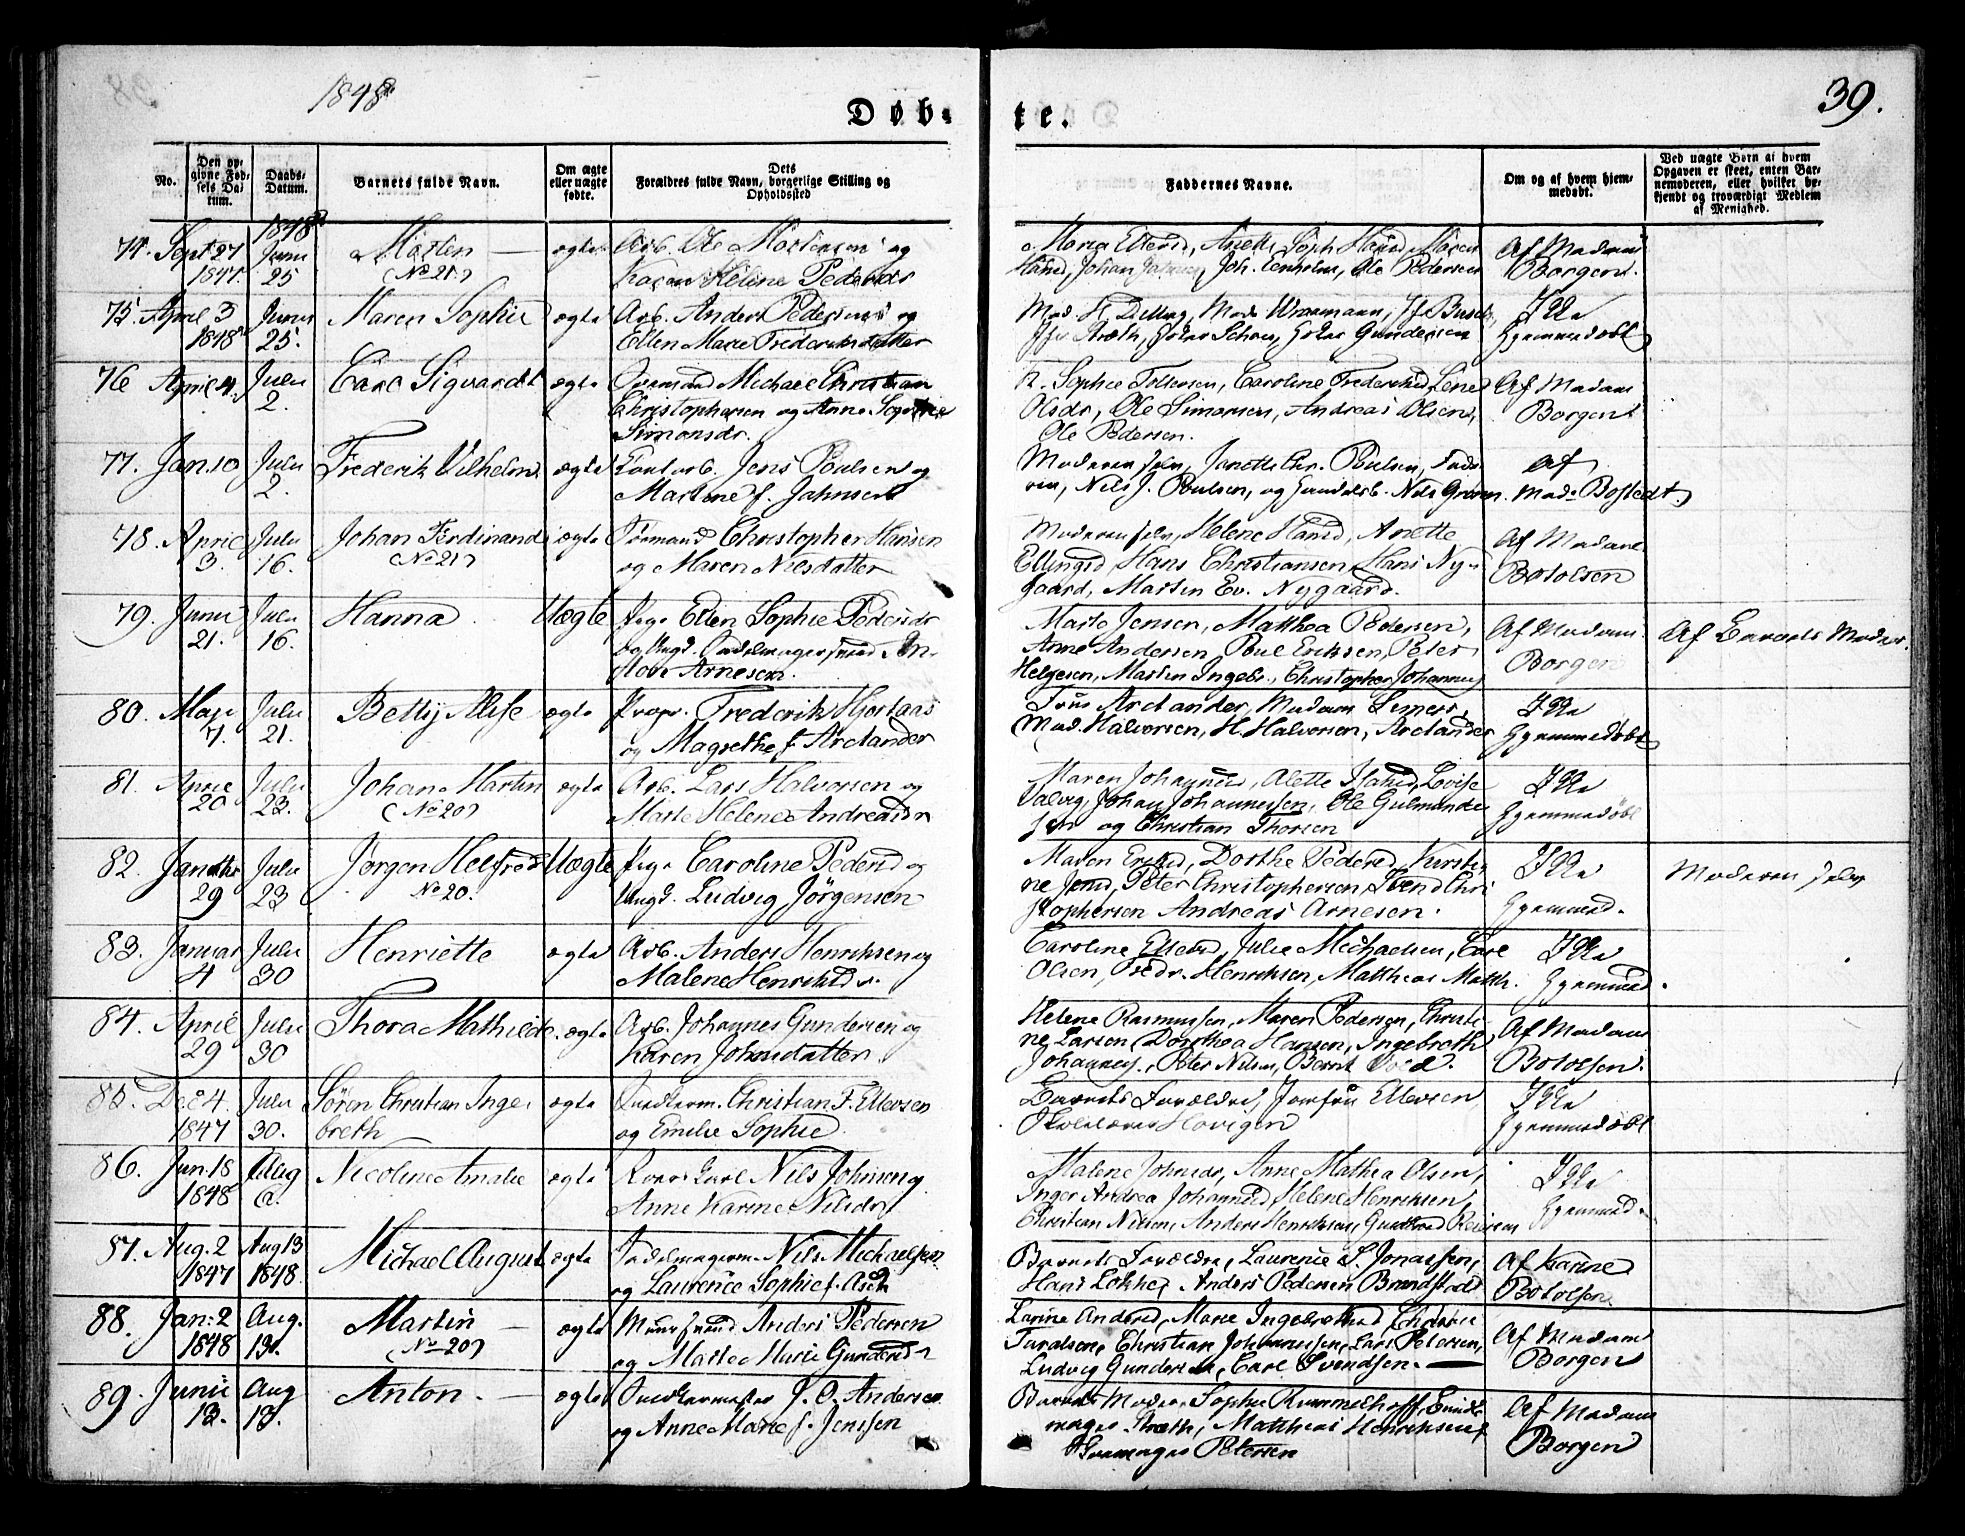 1848
39.
Døb-
te.
No.
Den op-
givne Fød-
sels Da-
tum.
Daabs-
Datum.
Barnets fulde Navn.
Om ægte
eller uægte
fødte.
Dets
Forældres fulde Navn, borgerlige Stilling og
Opholdssted
Faddernes Navne.
Om og af hvem hjem-
medøbt.
Ved uægte Børn af hvem
Opgaven er skeet, enten Bar-
nemoderen, eller hvilket be-
kjendt og troværdigt Medlem
af Menighed.
74. Sept 27 1848 Morten — ægte Arb. Ole Mortensen og
1847. Juni 25 (No 21)
Helene Pedersdr
Maren Hansd, Johan Joh. Ole Pedersen
Af Madam
Borgen.
75. April 3 Juni Maren Sophie ægte Arb. Anders Pedersen og
1848 25. Ellen Marie Frederiksdatter
Mad Wiramann, Jf. Busch,
Jfr Græth, Peder Gundersen
Ikke
Hjemmedøbt
76 April 4. Juli 2. Carl Sigvardt ægte Michael Christian
Christophersen og Anne Sophie
Simonsdr.
Sophie Tollersen, Caroline Frederiksd, Lene
Olsdr, Ole Simonsen, Andreas Olsen,
Ole Pedersen.
Af Madam
Borgen
77. Jan. 10 Juli 2. Frederik Vilhelm ægte Jens Poulsen og
Martine f. Jahnsen
Moderen selv, Janette Chr. Poulsen, Fade-
ren, Nils J. Poulsen, og Handelsb. Nils Grøn.
af
Mad. Bostedt
78. April 3. Juli 16. Johan Ferdinand ægte Tømmand Christopher Hansen
(No 21) og Maren Nilsdatter
Moderen selv, Helene Hansd, Anette
Ellingsd Hans Christiansen, Hans Ny-
gaard, Martin Ev. Nygaard.
Af Madam
Botolsen
79. Juni 21. Juli 16. Hanna Uægte Pige Ellen Sophie Pedersdr
og Ungk. Sadelmagersvend
Arnesen.
Marte Jensen, Matthea Pedersen,
Anne Andersen, Poul Eriksen, Peter
Helgesen, Martin Ingebr., Christopher Johannes
Af Madam
Borgen
Af Barnets Moder.
80. May 7. Juli 21. Betty Alise ægte Propr. Frederik Hjortaas
og Magrethe f. Arctander
Frue Arctander, Madam
Mad. Halvorsen, H. Halvorsen, Arctander
Ikke
Hjemmedøbt
81. April 20 Juli 23. Johan Martin ægte Arb. Lars Halvorsen og
(No 20) Marte Helene Andreasdr
Maren Johannesd, Alette Hansd, Lovise
Johan Johannessen, Ole Gulmunde
sen og Christian Thorsen
Ikke
Hjemmedøbt
82. 29 Juli 23 Jørgen Helfred Uægte Pige Caroline Pedersd og
No 20. Ungk. Ludvig Jørgensen
Maren Ersd, Dorthe Pedersd, Kirsti-
ne Jensd, Peter Christophersen, Svend Chri
stophersen Andreas Arnesen.
Ikke
Hjemmed.
Moderen selv
83. Januar 4 Juli 30 Henriette ægte Arb. Anders Henriksen og
Malene Henriksdr.
Caroline Ellefsd, Julie Michaelsen, Carl
Olsen, Fredr. Henriksen, Matthias Matth.
Ikke
Hjemmed.
84. April 29 Juli 30 Thora Mathilde. ægte Arb. Johannes Gundersen og
Karen Johnsdatter
Helene Rasmussen, Maren Pedersen, Christi-
ne Larsen, Dorthea Hansen, Ingebreth
Johannes., Peter Nilsen, Bernt
Af Madam
Botolsen.
85. Dec 4. 1847 Juli 30. Søren Christian Inge- ægte Christian F. Ellevsen
breth og Emilie Sophie
Barnets Forældre, Jomfru Ellevsen
Skolelærer
Ikke
Hjemmedøbt
86. Jun. 18 1848 Aug 6. Nicoline Amalie ægte Nils Johnsen og
Anne Karine Nilsdr
Malene Johnsdr, Anne Mathea Olsen,
Inger Andrea Johannesd, Helene Henriksen,
Christian Nilsen, Anders Henriksen,
Ikke
Hjemmed.
87. Aug. 2 1847 Aug 13 1848. Michael August ægte Sadelmagerm. Nils Michaelsen
og Laurence Sophie f.
Barnets Forældre, Laurence S. Jonassen,
Hans Løkke, Anders Pedersen Brandstad
Af Karine
Botolsen
88. Jan. 2 1848 Aug. 13. Martin — ægte Muursvend Anders Pedersen
(No 20) og Marte Marie Gundersdr
Larine Andersd, Marie Ingebretsd,
Christian Johannessen, Lars Petersen,
Ludvig Gundersen, Carl Svendsen. —
Af Madam
Borgen
89. Junii 12. Aug 13. Anton. — ægte J. C. Andersen
og Anne Marie f. Jenssen
Barnets Moder, Sophie Rummelhoff,
mager Matthias Henriksen,
Petersen
Af Madam
Borgen